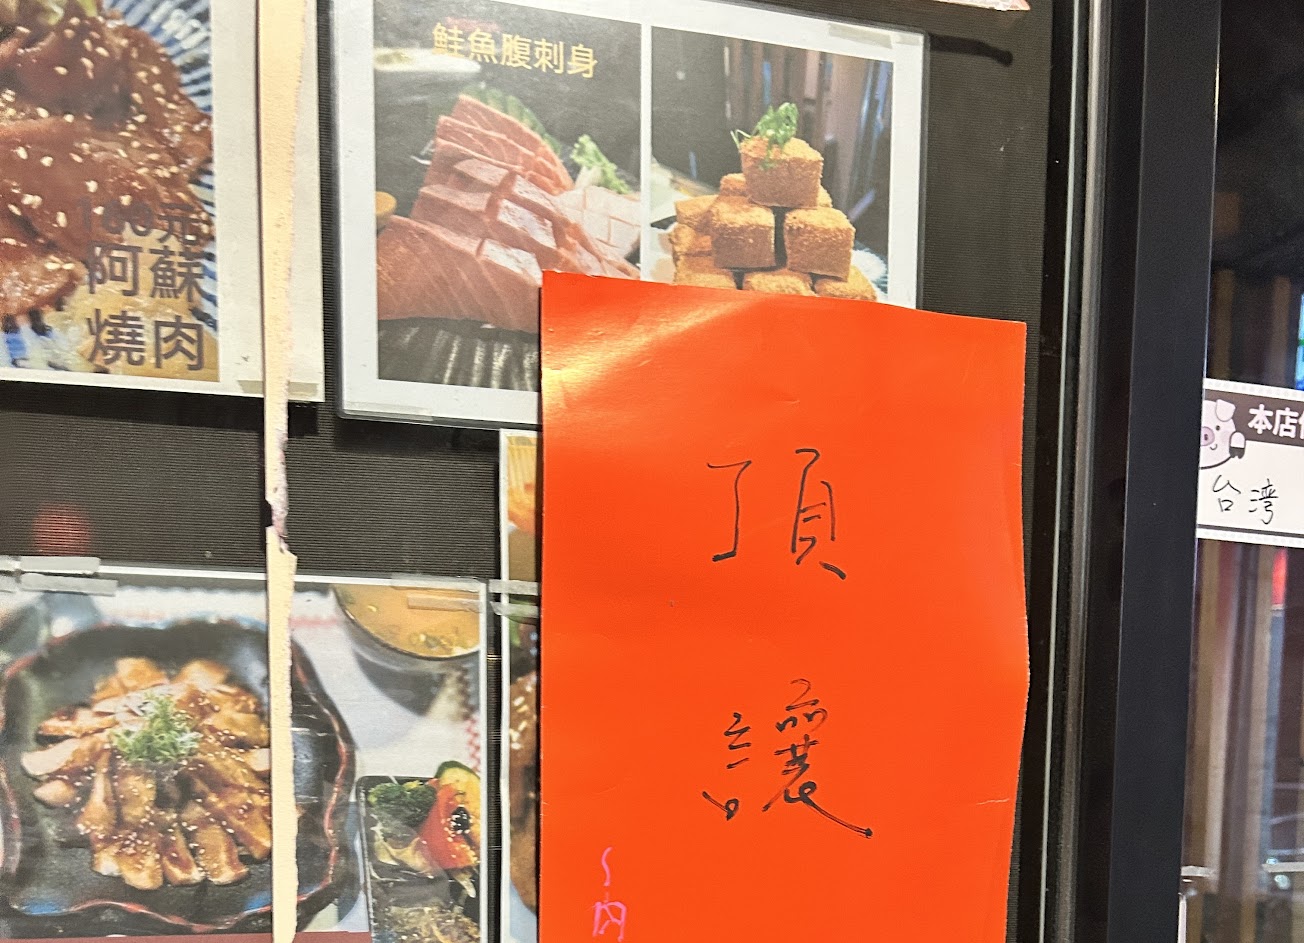 鮭魚腹刺身
100元
阿蘇
燒肉
頂
讓
內
本店
台湾